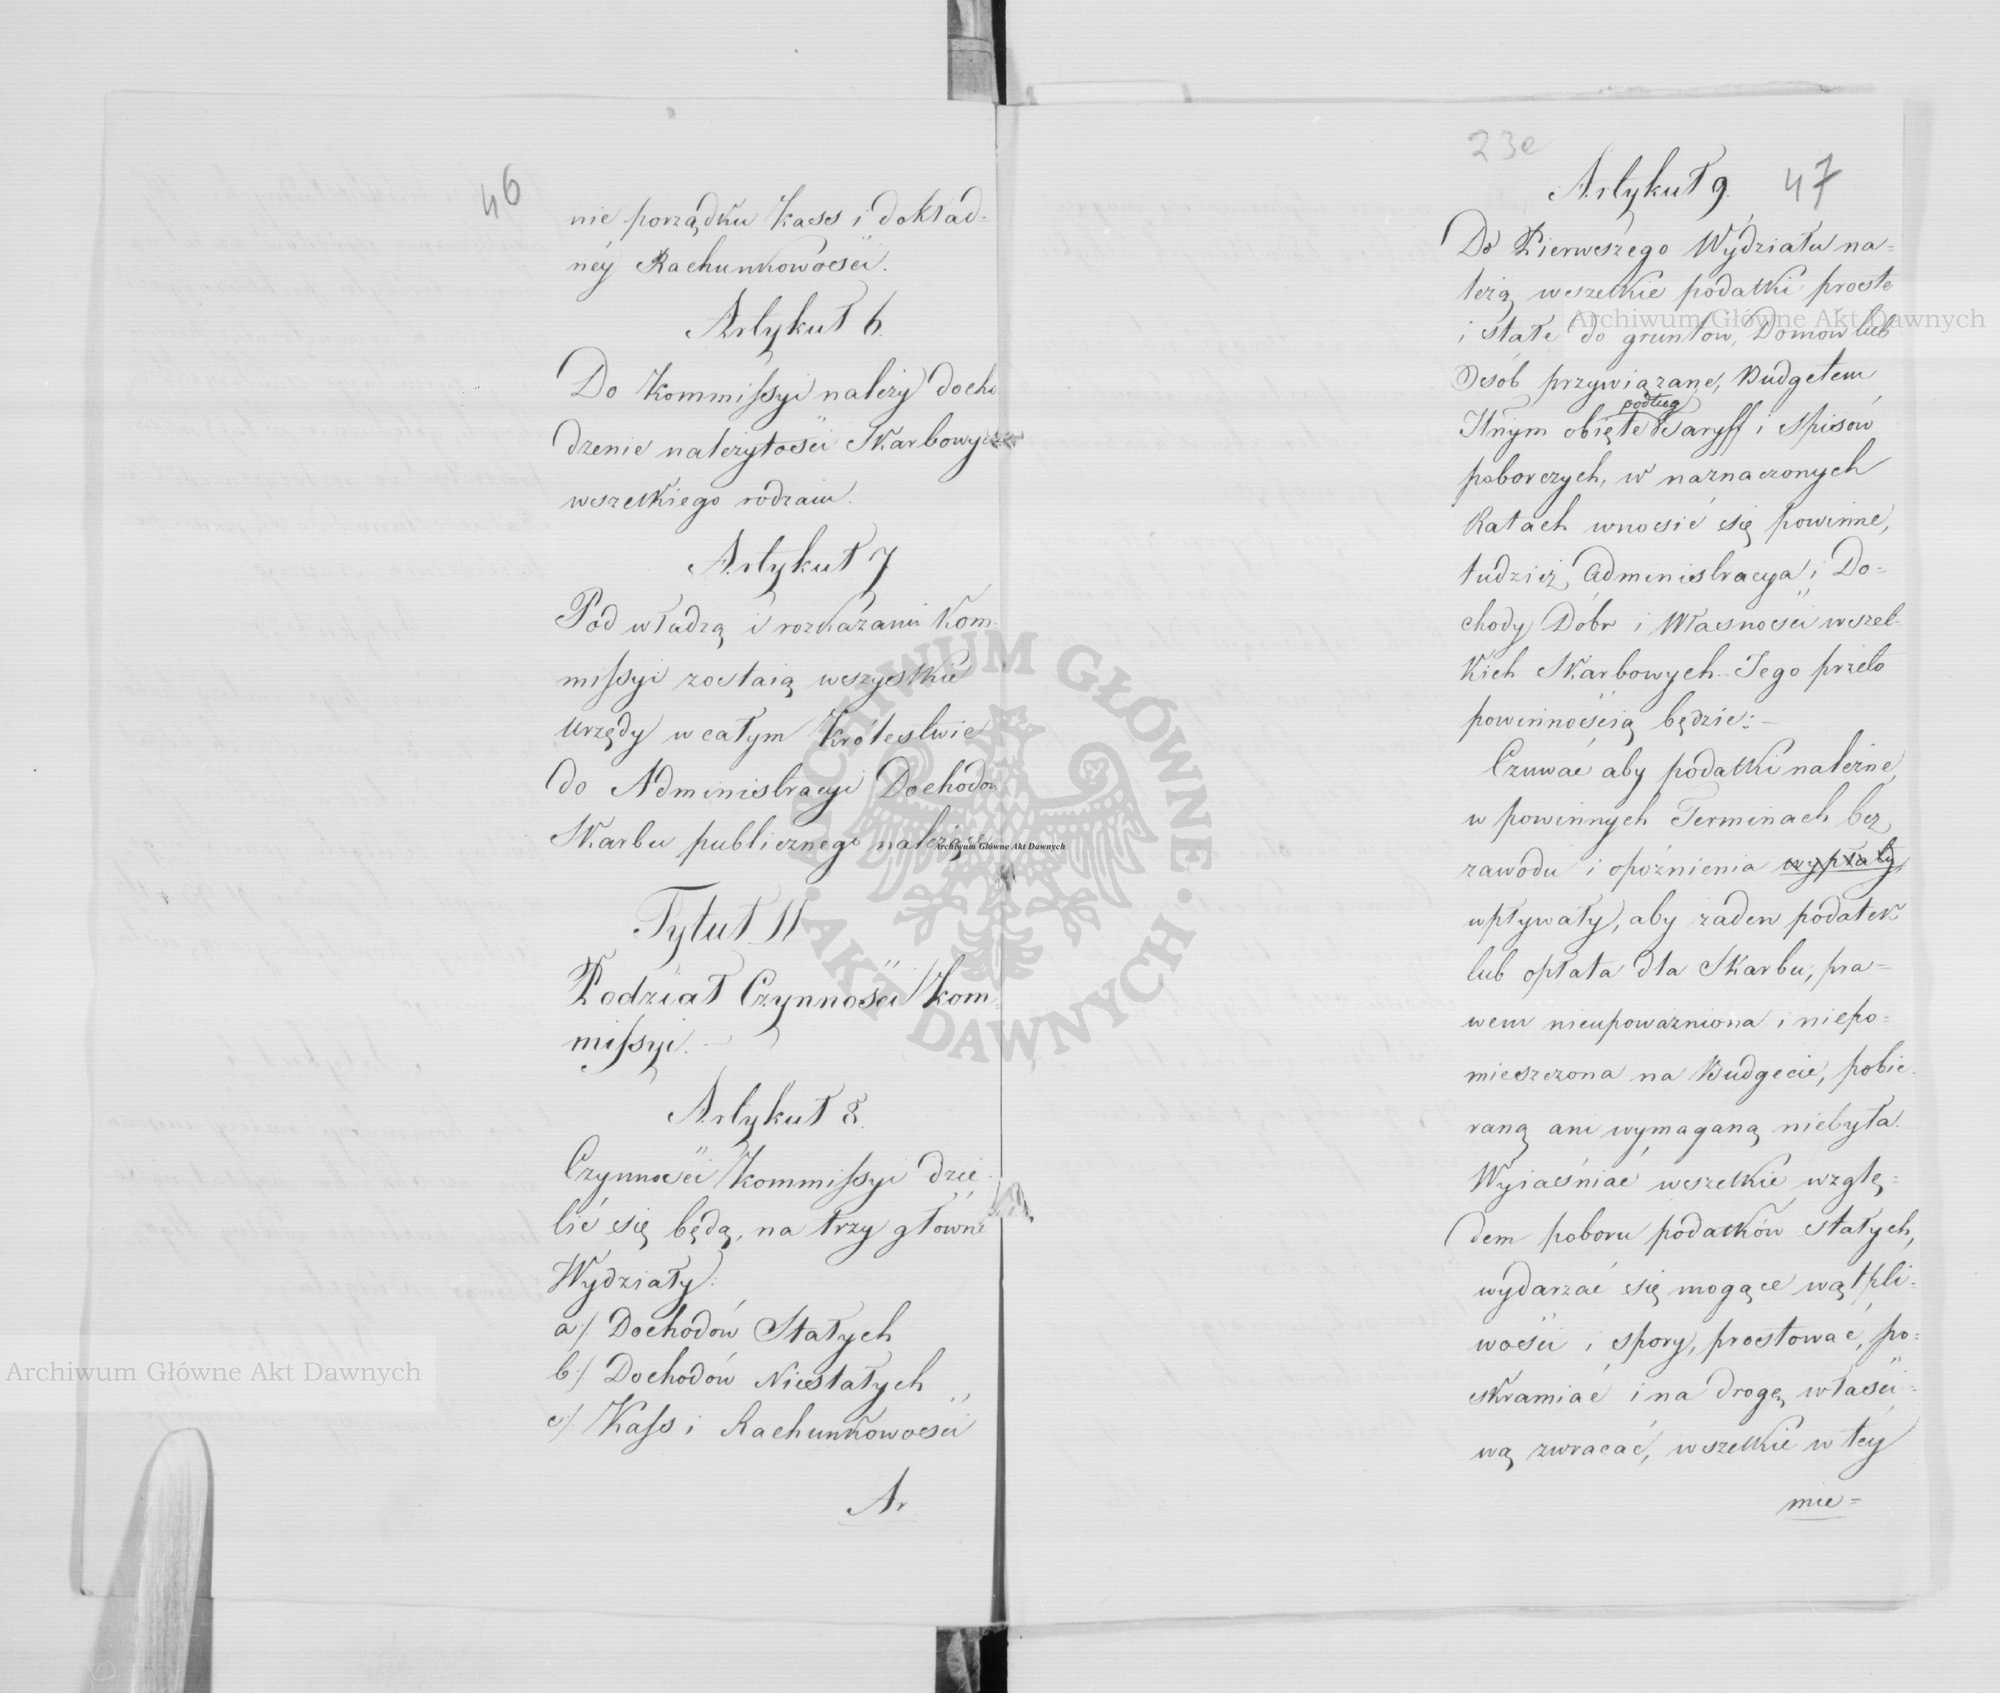 46
nie porządku Kass i dokład-
néy Rachunkowości.
Artykuł 6.
Do Kommissyi należy docho
dzenie należytości Skarbowych
wszelkiego rodzaiu.
Artykuł 7
Pod władzą i rozkazami Kom-
missyi zostaią wszystkie
urzędy w całym Królestwie
do Administracyi Dochodów
Skarbu publicznego należące
Tytuł II
Podział Czynności Kom-
missyi.
Artykuł 8.
Czynności Kommissyi dzie-
lić się będą, na trzy główne
Wydziały:
a/ Dochodów Stałych
b/ Dochodów Niestałych
c/ Kass i Rachunkowości
Ar
23e
47
Artykuł 9.
Do Pierwszego Wydziału na-
leżą wszelkie podatki proste
i stałe do gruntów, Domów lub
Osób przywiązane, Budgetem
podług
Iłnym obięte Taryff i Spisów
poborczych, w naznaczonych
Ratach wnosić się powinne,
tudzież Administracya i Do-
chody Dóbr i Własności wszel-
kich Skarbowych. Jego przeto
powinnością będzie:
Czuwać aby podatki należne,
w powinnych Terminach bez
zawodu i opóźnienia wypłaty
wpływały, aby żaden podatek
lub opłata dla Skarbu, pra-
wem nieupoważniona i niepo-
mieszczona na Budgecie, pobie-
raną ani wymaganą niebyła.
Wyiaśniać wszelkie wzglę-
dem poboru podatków stałych,
wydarzać się mogące wątpli-
wości i spory, prostować, po-
skramiać i na drogę właści-
wą zwracać, wszelkie w téy
mie-
Archiwum Główne Akt Dawnych
Archiwum Główne Akt Dawnych
Archiwum Główne Akt Dawnych
ARCHIWUM GŁÓWNE · AKT DAWNYCH ·